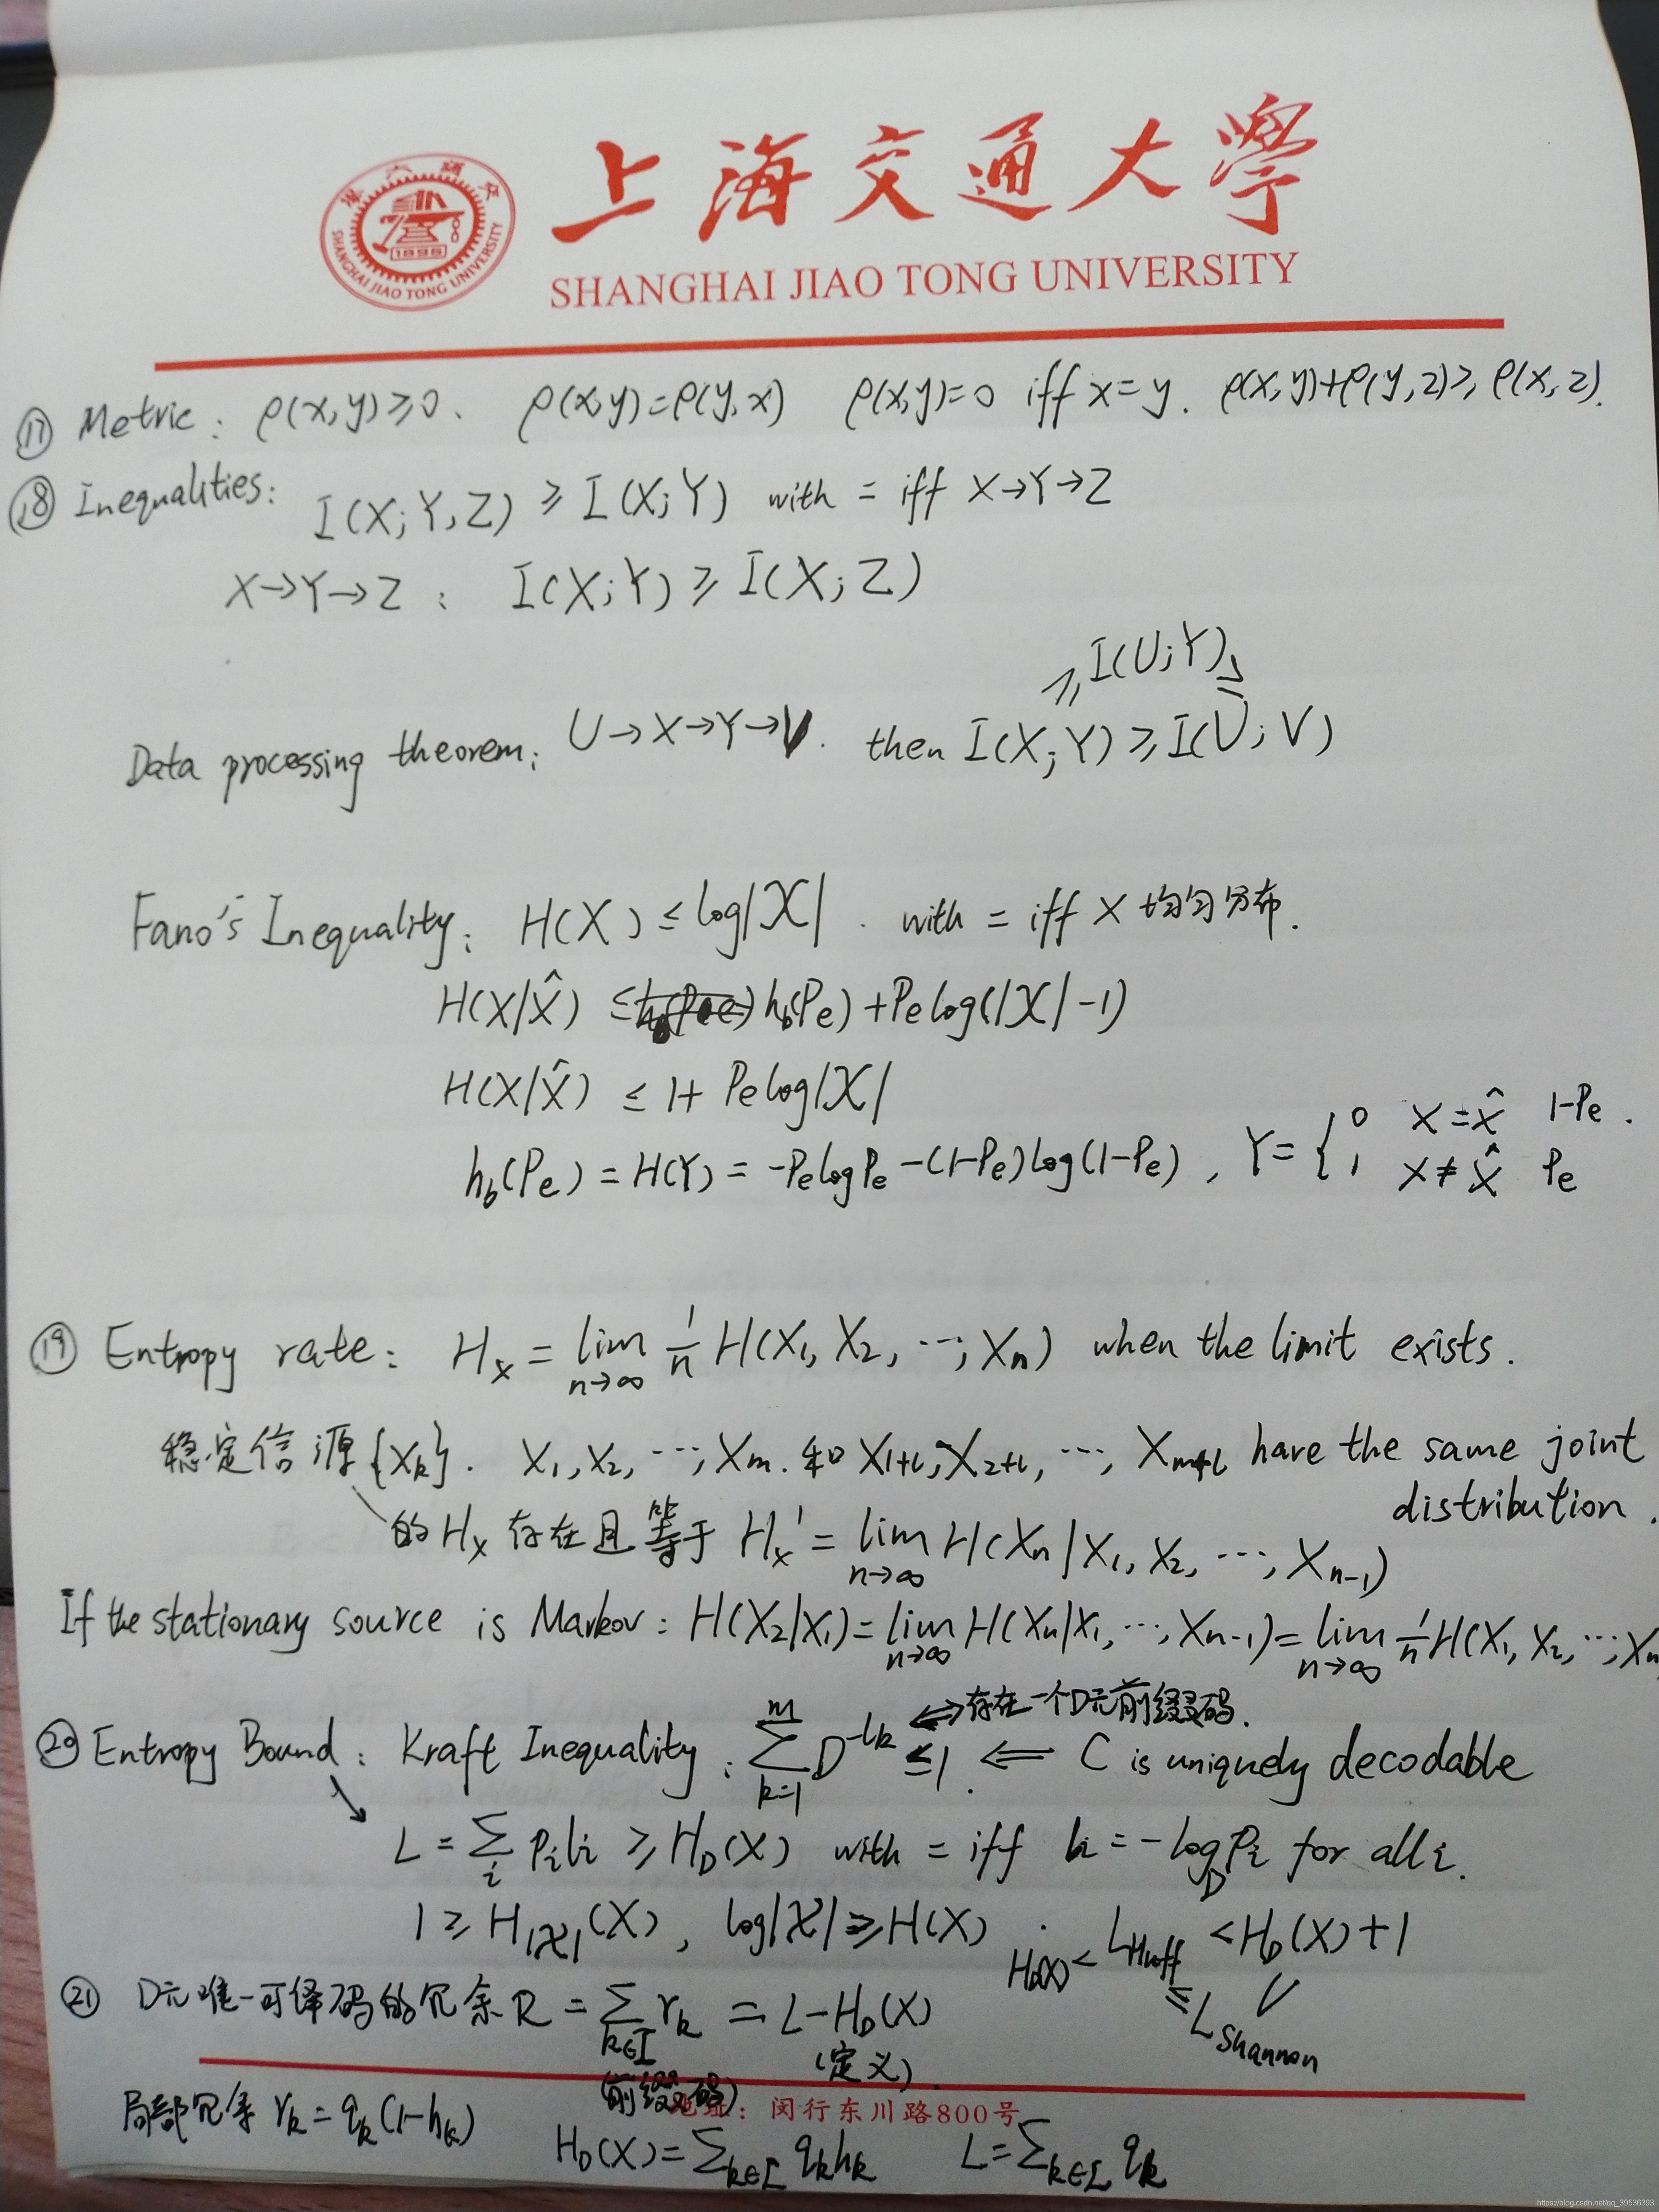 上海交通大學
SHANGHAI JIAO TONG UNIVERSITY
1896
SHANGHAI JIAO TONG UNIVERSITY
⑰ Metric: ρ(x,y)≥0. ρ(x,y)=ρ(y,x) ρ(x,y)=0 iff x=y. ρ(x,y)+ρ(y,z)≥ρ(x,z).
⑱ Inequalities: I(X;Y,Z) ≥ I(X;Y) with = iff X→Y→Z
X→Y→Z: I(X;Y) ≥ I(X;Z)
≥ I(U;Y) ≥
Data processing theorem: U→X→Y→V. then I(X;Y) ≥ I(U;V)
Fano's Inequality: H(X) ≤ log|𝒳|. with = iff X 均匀分布.
H(X|X̂) ≤ h_b(Pe)+Pe log(|𝒳|-1)
H(X|X̂) ≤ 1+ Pe log|𝒳|
h_b(Pe) = H(Y) = -Pe log Pe -(1-Pe)log(1-Pe), Y= { 0 X=X̂ 1-Pe.
1 X≠X̂ Pe
⑲ Entropy rate: H_x = lim n→∞ 1/n H(X1, X2, ..., Xn) when the limit exists.
稳定信源{X_k}. X1, X2, ..., Xm. 和 X1+l, X2+l, ..., Xm+l have the same joint
distribution.
的 H_x 存在且等于 H_x' = lim n→∞ H(Xn|X1, X2, ..., Xn-1)
If the stationary source is Markov: H(X2|X1)= lim n→∞ H(Xn|X1, ..., Xn-1)= lim n→∞ 1/n H(X1, X2, ..., Xn
⟺存在一个D元前缀码.
⑳ Entropy Bound: Kraft Inequality: ∑_{k=1}^{m} D^{-l_k} ≤1. ⟸ C is uniquely decodable
L = ∑_i p_i l_i ≥ H_D(X) with = iff l_i = -log_D p_i for all i.
1 ≥ H_|𝒳|(X), log|𝒳| ≥ H(X). H_D(X) < L_Huff < H_D(X)+1
≤ L_Shannon
㉑ D元唯一可译码的冗余 R = ∑_{k∈I} r_k = L-H_D(X)
(前缀码) (定义).
地址: 闵行东川路800号
局部冗余 r_k = q_k(1-h_k)
H_D(X)=∑_{k∈I} q_k h_k L=∑_{k∈I} q_k
https://blog.csdn.net/qq_39536393